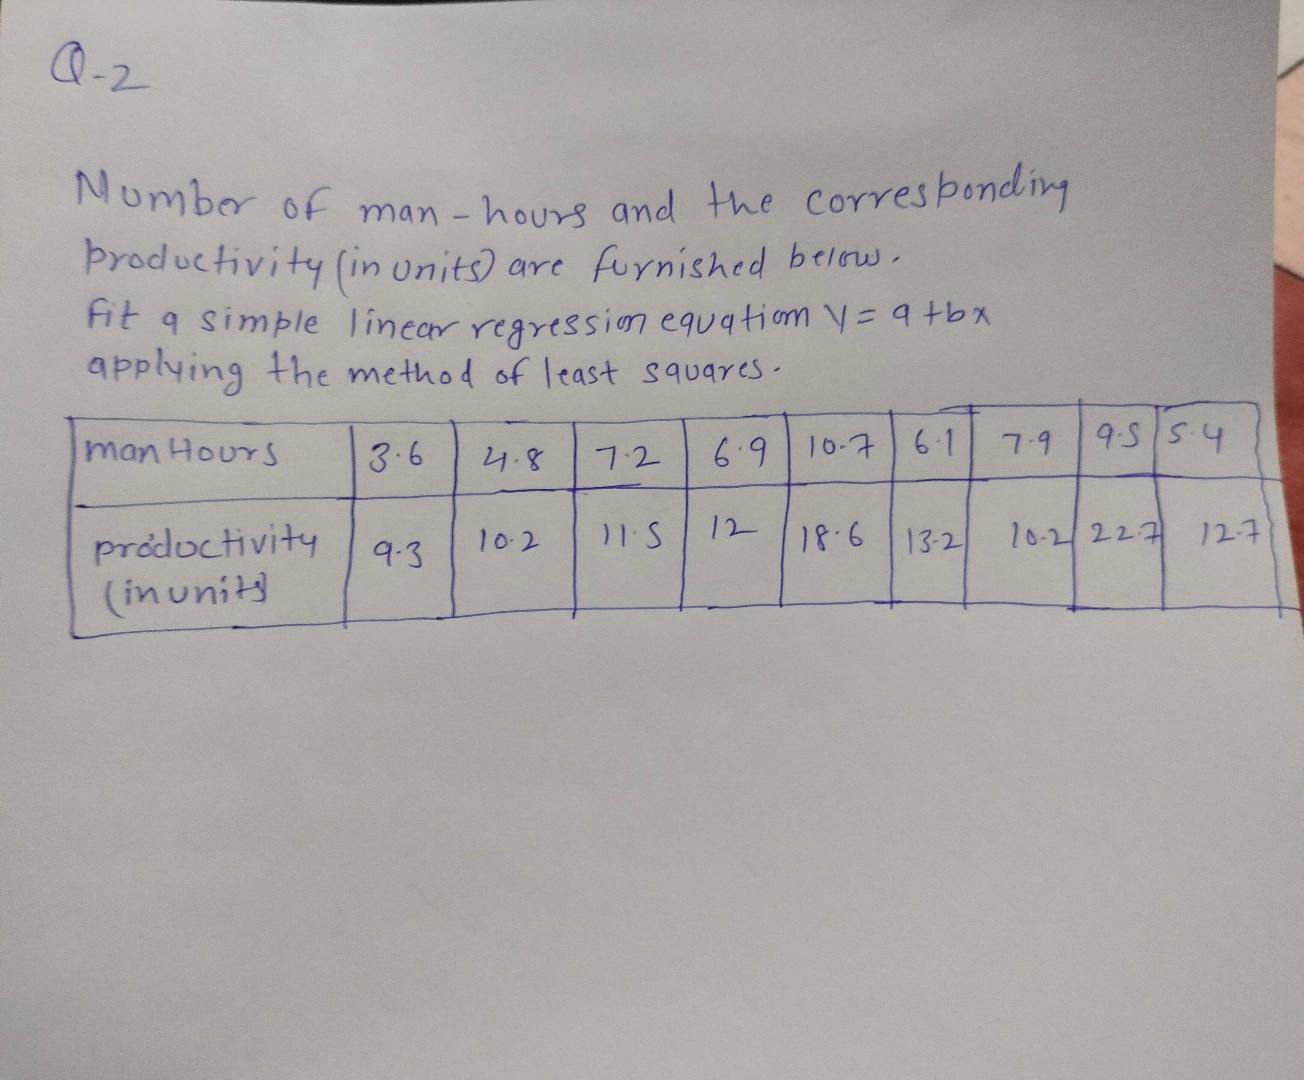 Q-2
Number of man-hours and the corresponding
productivity (in units) are furnished below.
fit a simple linear regression equation y = a + bx
applying the method of least squares.
man Hours 3.6 4.8 7.2 6.9 10.7 6.1 7.9 9.5 5.4
productivity 9.3 10.2 11.5 12 18.6 13.2 10.2 22.7 12.7
(in units)